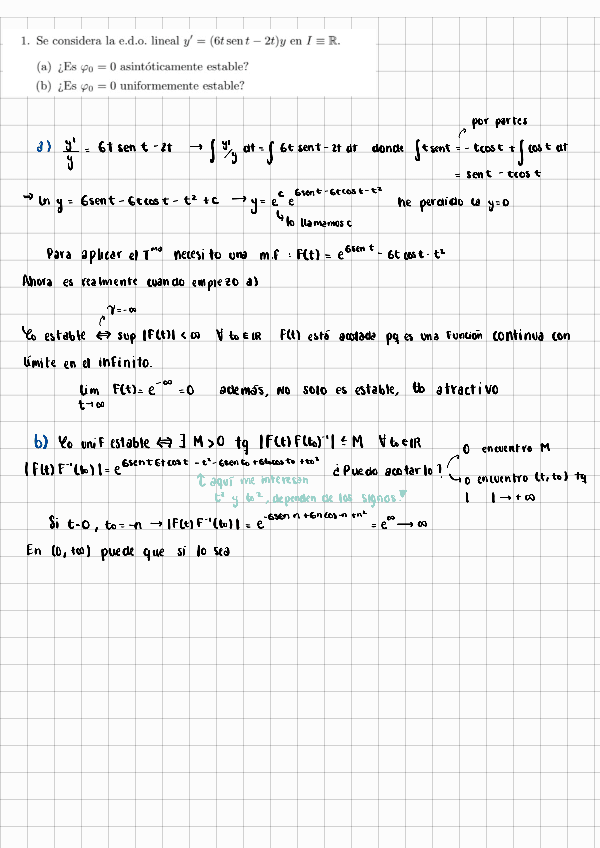 1. Se considera la e.d.o. lineal y′ = (6t sen t − 2t)y en I ≡ ℝ.
(a) ¿Es φ₀ = 0 asintóticamente estable?
(b) ¿Es φ₀ = 0 uniformemente estable?
por partes
a) y'/y = 6t sen t - 2t → ∫ y'/y dt = ∫ 6t sent - 2t dt donde ∫ t sent = - t cos t + ∫ cos t dt
= sen t - t cos t
→ ln y = 6sen t - 6t cos t - t² + c → y = e^c e^{6sen t - 6t cos t - t²} he perdido la y=0
↳ lo llamamos c
Para aplicar el T^ma necesito una m.f : F(t) = e^{6sen t - 6t cos t - t²}
Ahora es realmente cuando empiezo a)
γ = -∞
φ₀ estable ⇔ sup |F(t)| < ∞ ∀ t₀ ∈ ℝ F(t) está acotada pq es una función continua con
límite en el infinito.
lim F(t) = e^{-∞} = 0 además, no solo es estable, tb atractivo
t→∞
b) φ₀ unif estable ⇔ ∃ M > 0 tq |F(t) F(t₀)⁻¹| ≤ M ∀ t₀ ∈ ℝ
o encuentro M
|F(t) F⁻¹(t₀)| = e^{6sen t 6t cos t - t² - 6sen t₀ + 6t₀ cos t₀ + t₀²} ¿Puedo acotarlo?
o encuentro (t, t₀) tq
| | → +∞
↑ aquí me interesan
t² y t₀², dependen de los signos!
Si t=0, t₀ = -n → |F(t) F⁻¹(t₀)| = e^{-6sen n + 6n cos -n + n²} = e^∞ → ∞
En (0, +∞) puede que sí lo sea